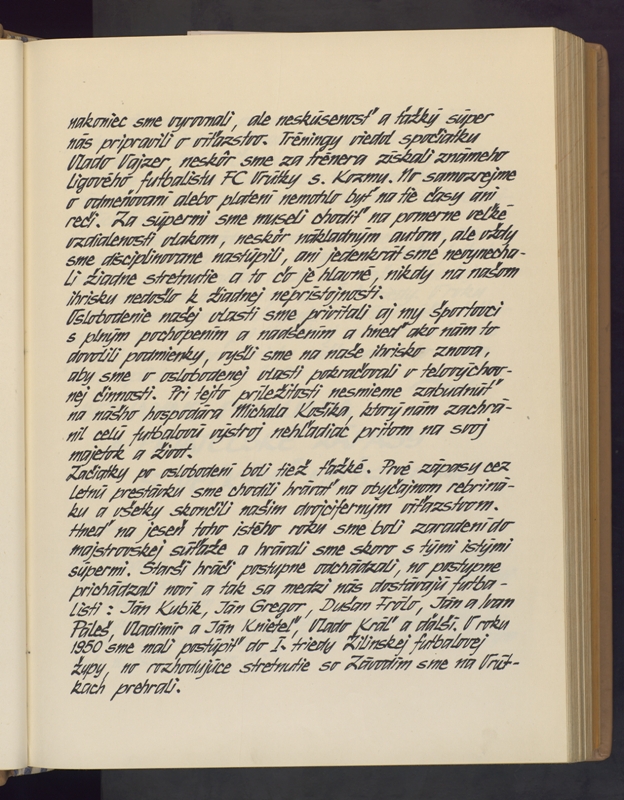 nakoniec sme vyrovnali, ale neskúsenosť a ťažký súper
nás pripravili o víťazstvo. Tréningy viedol spočiatku
Vlado Vajzer, neskôr sme za trénera získali známeho
ligového futbalistu FC Vrútky s. Kozmu. No samozrejme
o odmeňovaní alebo platení nemohlo byť na tie časy ani
reči. Za súpermi sme museli chodiť na pomerne veľké
vzdialenosti vlakom, neskôr nákladným autom, ale vždy
sme disciplinovane nastúpili, ani jedenkrát sme nevynecha-
li žiadne stretnutie a to čo je hlavné, nikdy na našom
ihrisku nedošlo k žiadnej neprístojnosti.
Oslobodenie našej vlasti sme privítali aj my športovci
s plným pochopením a nadšením a hneď ako nám to
dovolili podmienky, vyšli sme na naše ihrisko znova,
aby sme v oslobodenej vlasti pokračovali v telovýchov-
nej činnosti. Pri tejto príležitosti nesmieme zabudnúť
na nášho hospodára Michala Košíka, ktorý nám zachrá-
nil celú futbalovú výstroj nehľadiac pritom na svoj
majetok a život.
Začiatky po oslobodení boli tiež ťažké. Prvé zápasy cez
letnú prestávku sme chodili hrávať na obyčajnom rebriná-
ku a všetky skončili našim dvojciferným víťazstvom.
Hneď na jeseň toho istého roku sme boli zaradení do
majstrovskej súťaže a hrávali sme skoro s tými istými
súpermi. Starší hráči postupne odchádzali, no postupne
prichádzali noví a tak sa medzi nás dostávajú futba-
listi: Ján Kubík, Ján Gregor, Dušan Frólo, Ján a Ivan
Páleš, Vladimír a Ján Knieteľ, Vlado Kráľ a ďalší. V roku
1950 sme mali postúpiť do I. triedy Žilinskej futbalovej
župy, no rozhodujúce stretnutie so Závodím sme na Vrút-
kach prehrali.